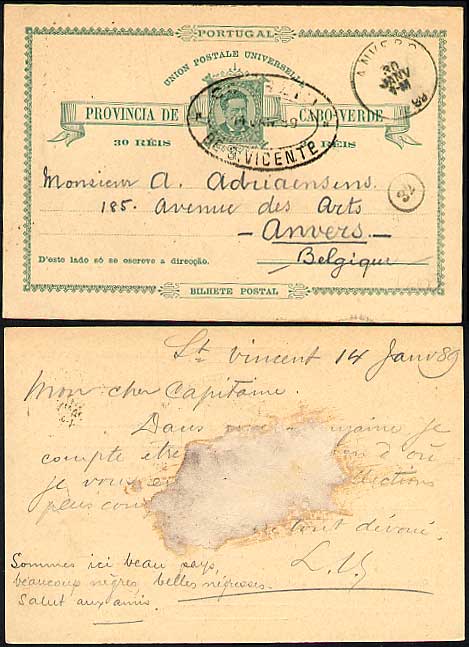 PORTUGAL
UNION POSTALE UNIVERSELLE
PROVINCIA DE CABO-VERDE
30 RÉIS RÉIS
DE S. VICENTE
ANVERS
30
JANV
Monsieur A. Adriaensens
32
185. Avenue des Arts
- Anvers -
Belgique
D'este lado só se escreve a direcção.
BILHETE POSTAL
St Vincent 14 Janv 89
Mon cher Capitaine.
Dans je
compte être d'où
je vous
plus
tout dévoué.
L.
Sommes ici beau pays,
beaucoup nègres belles négresses.
Salut aux amis.